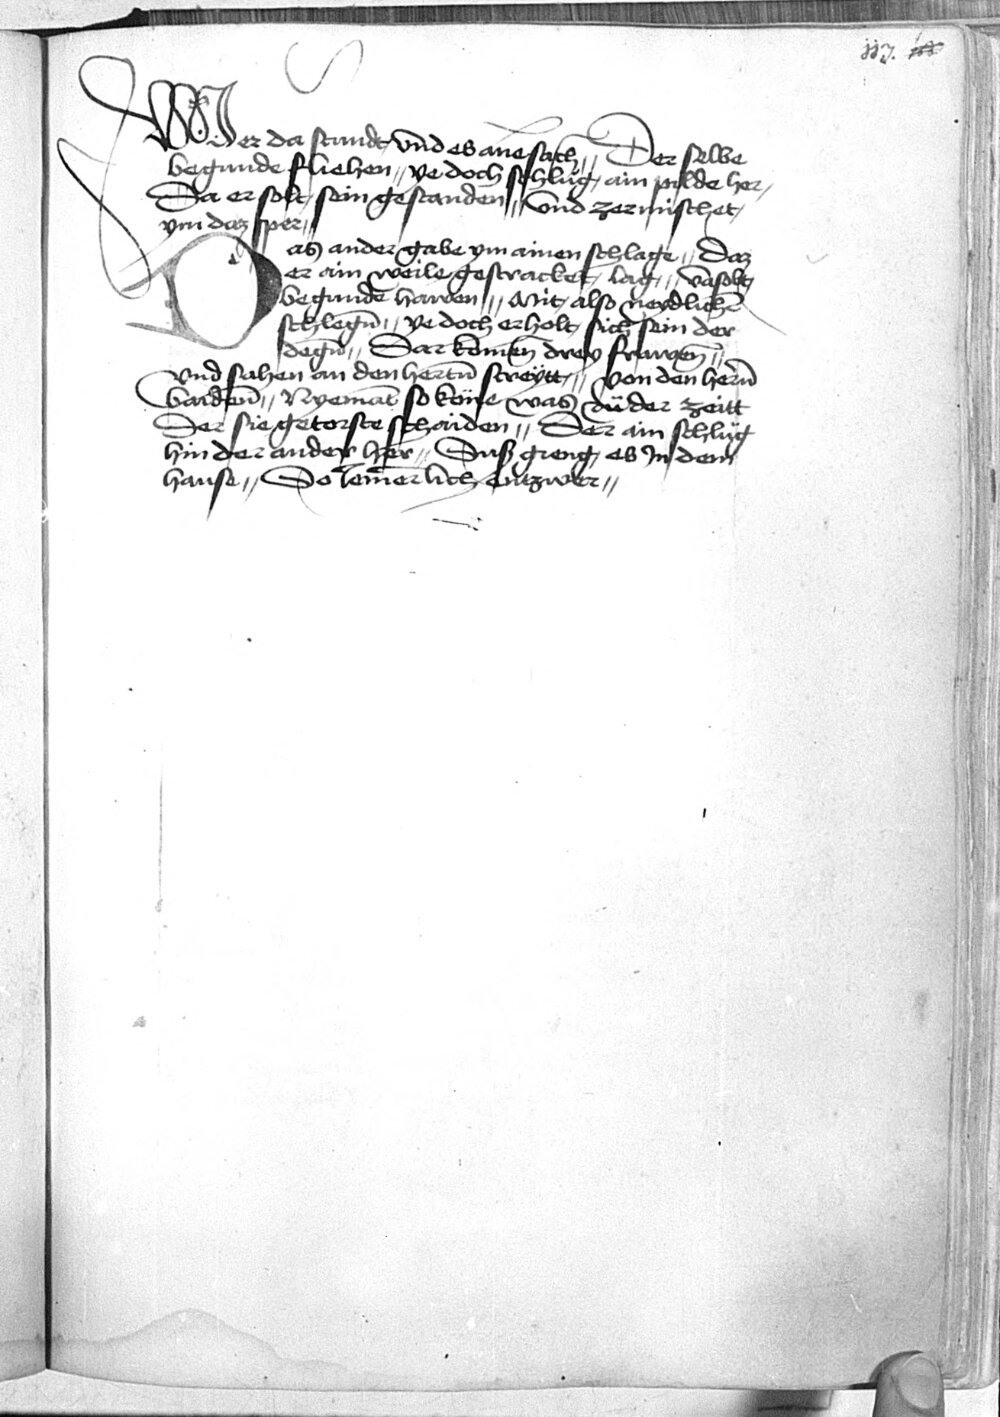 117.
Wer da stundt vnd es ane sach // Der selbe
begunde fliehen // ye doch schlug ain pilde her /
Da er solt sein gestanden // Vnd zermischet
ym daz sper //
Das ander gabe ym ainen schlage // Daz
er ain weile gestracket lag // Vasolt
begunde hawen // Mit also neydlichē
schlegn̄ // ye doch erholt sich sein der
degn̄ // Dar komen drey frawen //
Vnd sahen an den hertn̄ streÿtt // Von den hern̄
baiden̄ // Nyemāt so köne was zü der zeitt
Der sie getorste schaiden // Der ain schlüg
hin der ander her // Suß gieng es In dem
hause // So iemerlich entzwer //